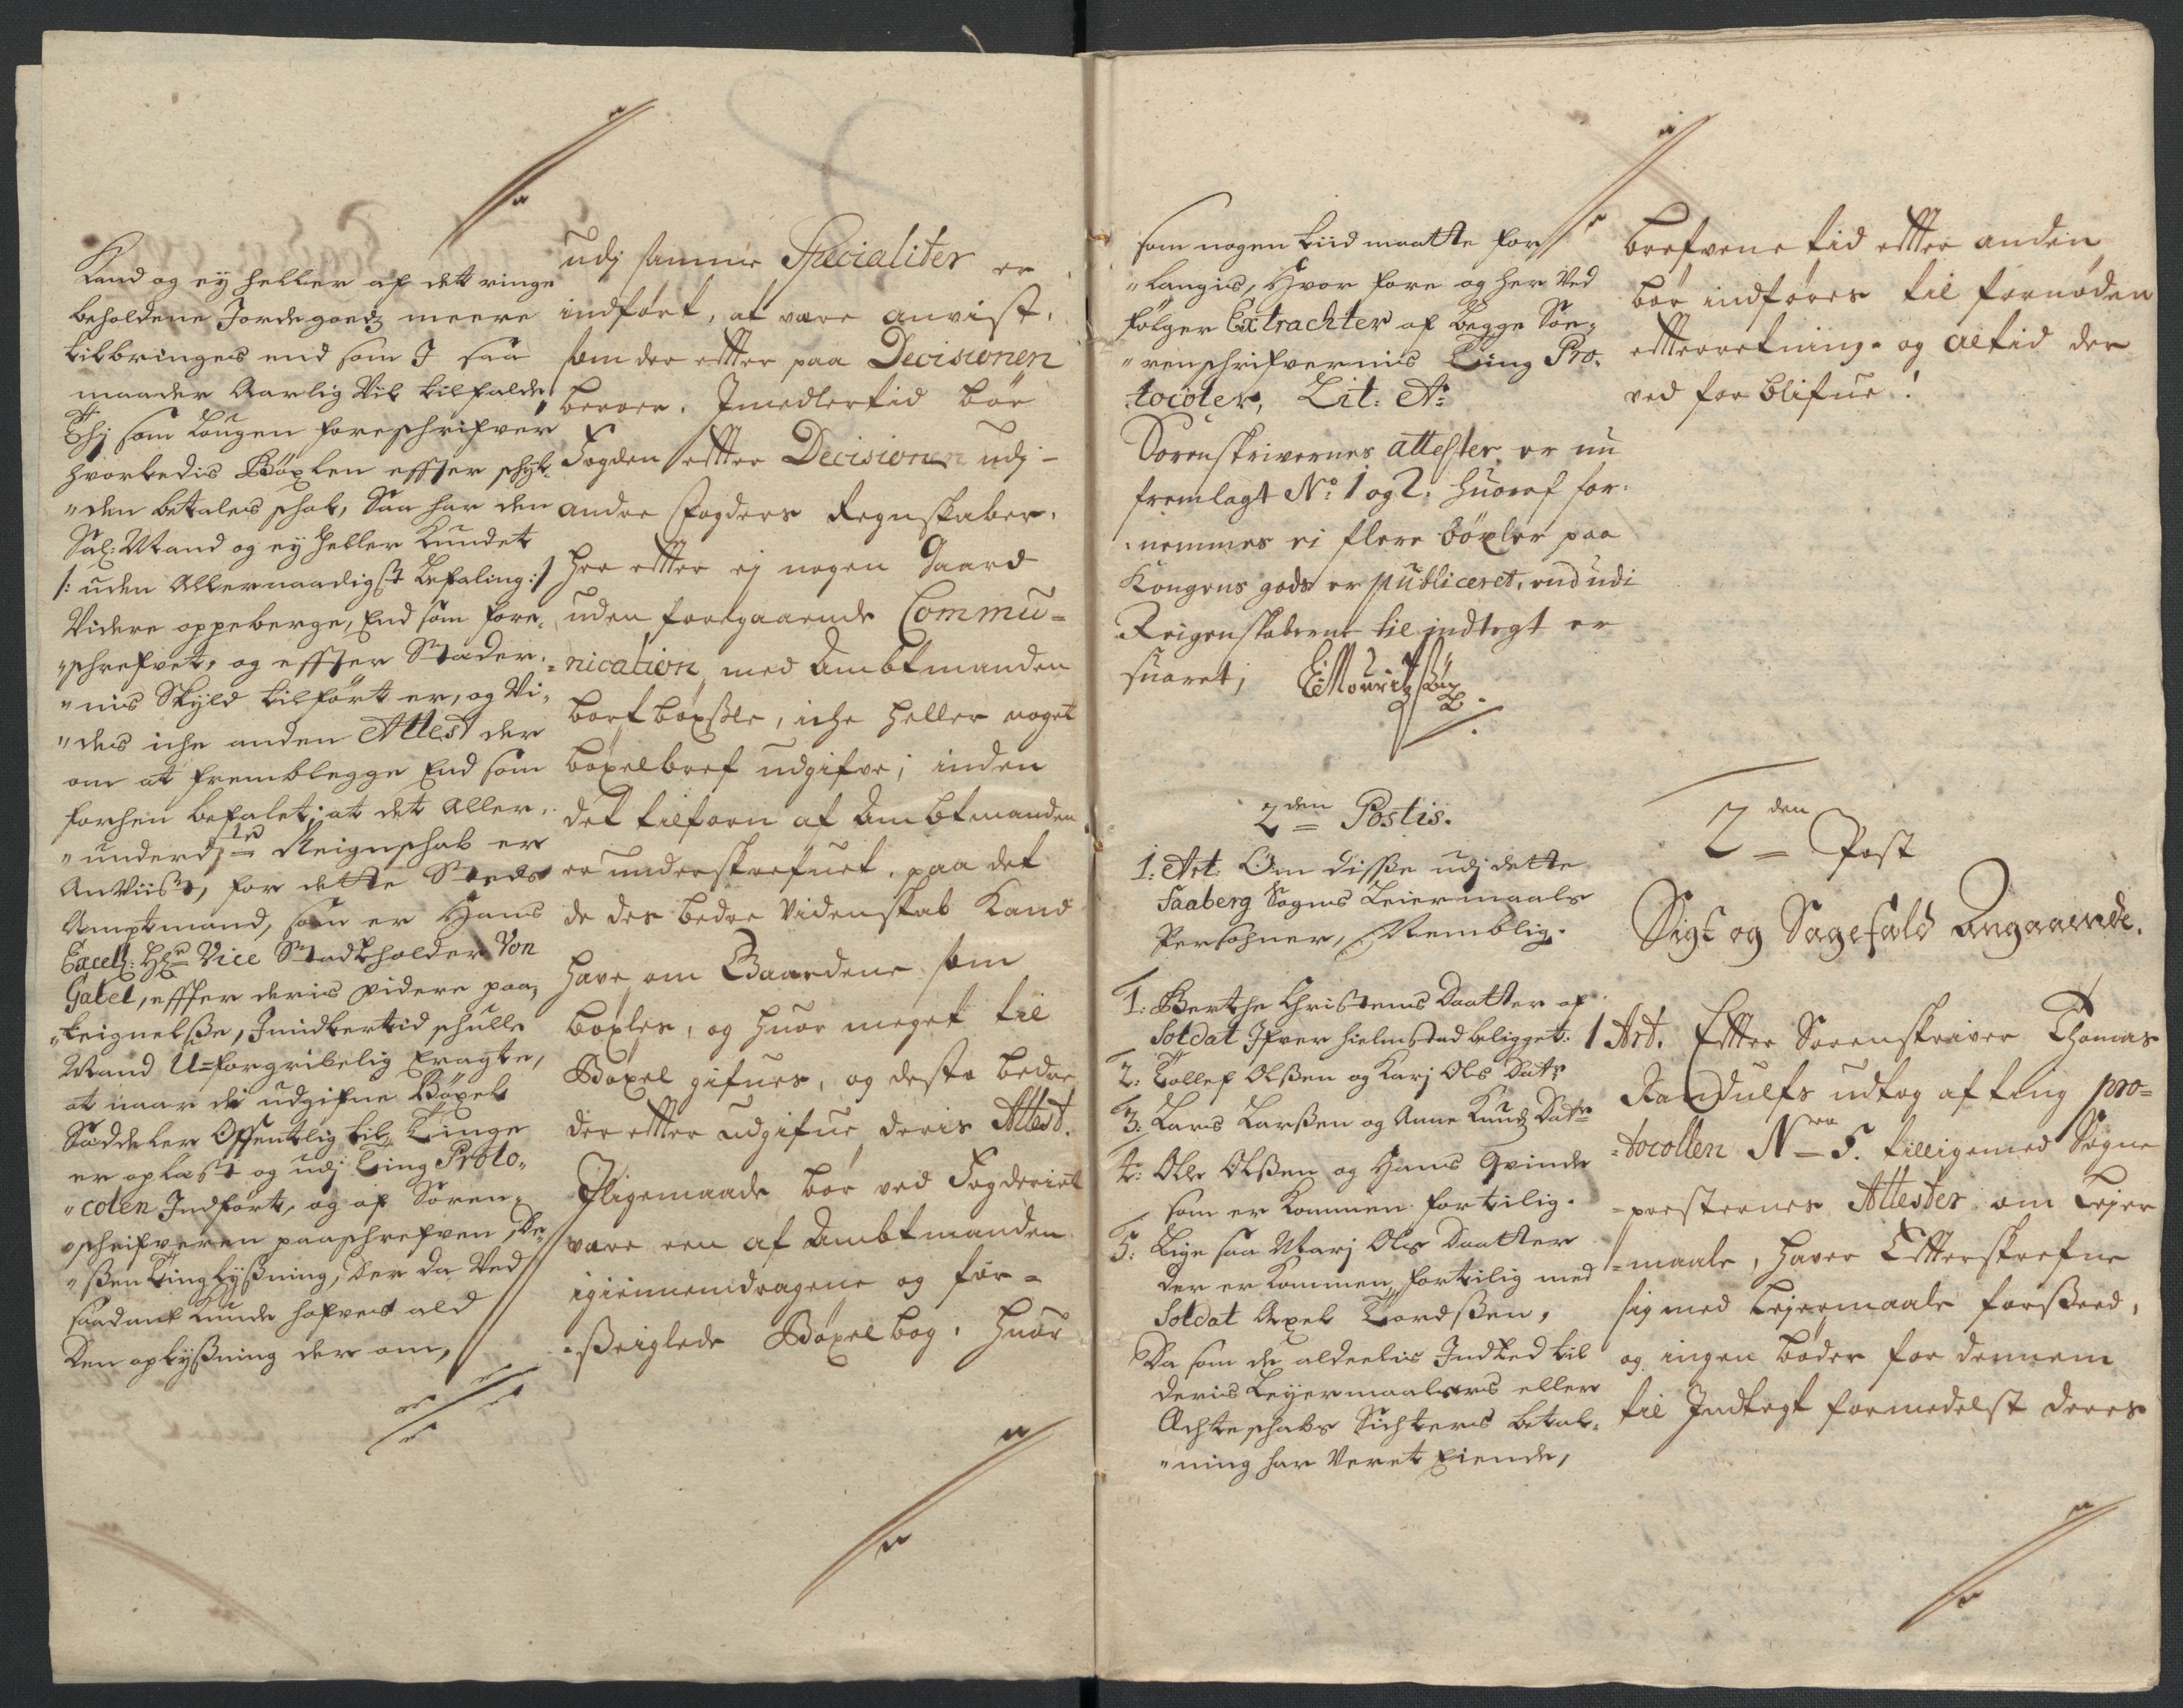 Kand og ej heller af det ringe
beholdene Jordegoedz meere
tilbringes end som I saa
maader Aarlig Vil tilfalde,
Thj som Lougen foreschrifver
hvorledis Böxlen effter schyl-
"den betales schal, Saa har den
Sal: Mand og ey heller kundet
/: uden Allernaadigst befaling :/
Videre oppeberge, End som fore,
"schrefvet, og effter Stæder,
"nis Skyld tilfört er, og Vi,
"des iche anden Attest der
om at fremblegge End som
forhen befalet, at det Aller,
"underd:ste Reigenschab er
Anviist, for dette Steds
Amptmand, som er Hans
Excell: Hr Vice Stadtholder Von
Gabel, effter deris videre paa,
"teignelsse, Imidlertid schulle
Mand U=forgribelig Eragte,
at naar di udgifne Böxel
Sæddeler Offentlig til Tinge
er oplæst og udj Ting Proto,,
"colen Indfört, og af Soren,
"schrifveren paaschrefven, De,
"ssen Ting lyssning, der da Ved
saadant kunde hafves ald
den oplyssning der om,
udj samme Specialiter er
indført, at være anvist,
som der efter paa Decisionen
beroer. Imedlertid bör
Fogden efter Decisionen udj-
andre Fogders Regnskaber,
her efter ej nogen Gaard
uden foregaaende Commu=
=nication med Ambtmanden
bortböxsle, iche heller noget
böxelbref udgifve; inden
det tilforn af Ambtmanden
er underskrefuet, paa det
de des bedre Videnskab Kand
have om Gaardene som
böxles, og huor meget til
Böxel gifues, og desto bedre
der efter udgifue deris Attest.
Jligemaade bör ved Fogderiet
være een af Ambtmanden
igiennemdragene og for=
=sseiglede Böxel bog, huor
som nogen tiid maatte for
"langis, Hvor fore og her Ved
fölger Extrachter af begge Soe,
"renschrifvernis Ting Pro,
tocoler, Lit: A:
Sorenskrivernes attester er nu
fremlagt No: 1 og 2, huoraf for-
nemmes ei flere böxler paa
Kongens gods er publiceret, end udi
Reigenskaberne til indtegt er
fuaret;
2den Postis.
1: Art: Om disse udj dette
Faaberg Sogns Leiermaals
Personer, Nemblig.
1: Berthe Christens Daatter af
Soldat Ifver hielmstad beligget:
2: Tollef Olssen og Karj Ols Datr
3: Lars Larssen og Anne Knudz Datr
4: Ole Olssen og Hans Qvinde
som er kommen fortilig.
5: Lige saa Marj Ols Daatter
der er kommen fortilig med
Soldat Axel Tordssen,
Da som de aldeelis Indted til
deris Leyermaals eller
Achteschabs Sichters betal,
"ning har Veret Eiende,
brefvene tid efter anden
bör indføres til fornøden
efterretning. og altid der
ved for blifue!
2den Post
Sigt og Sagefald Angaaende.
1 Art. Efter Sorenskriver Thomas
Randulfs udtog af ting pro=
=tocollen Nra 5. tilligemed Sogne
=presternes Attester om Lejer
=maale, haver Efterskrefne
sig med Lejermaale forsseed,
og ingen böder for dennem
til Indtegt formedelst deres